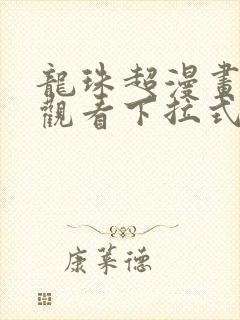 龍珠超漫畫
觀看下拉式
康萊德